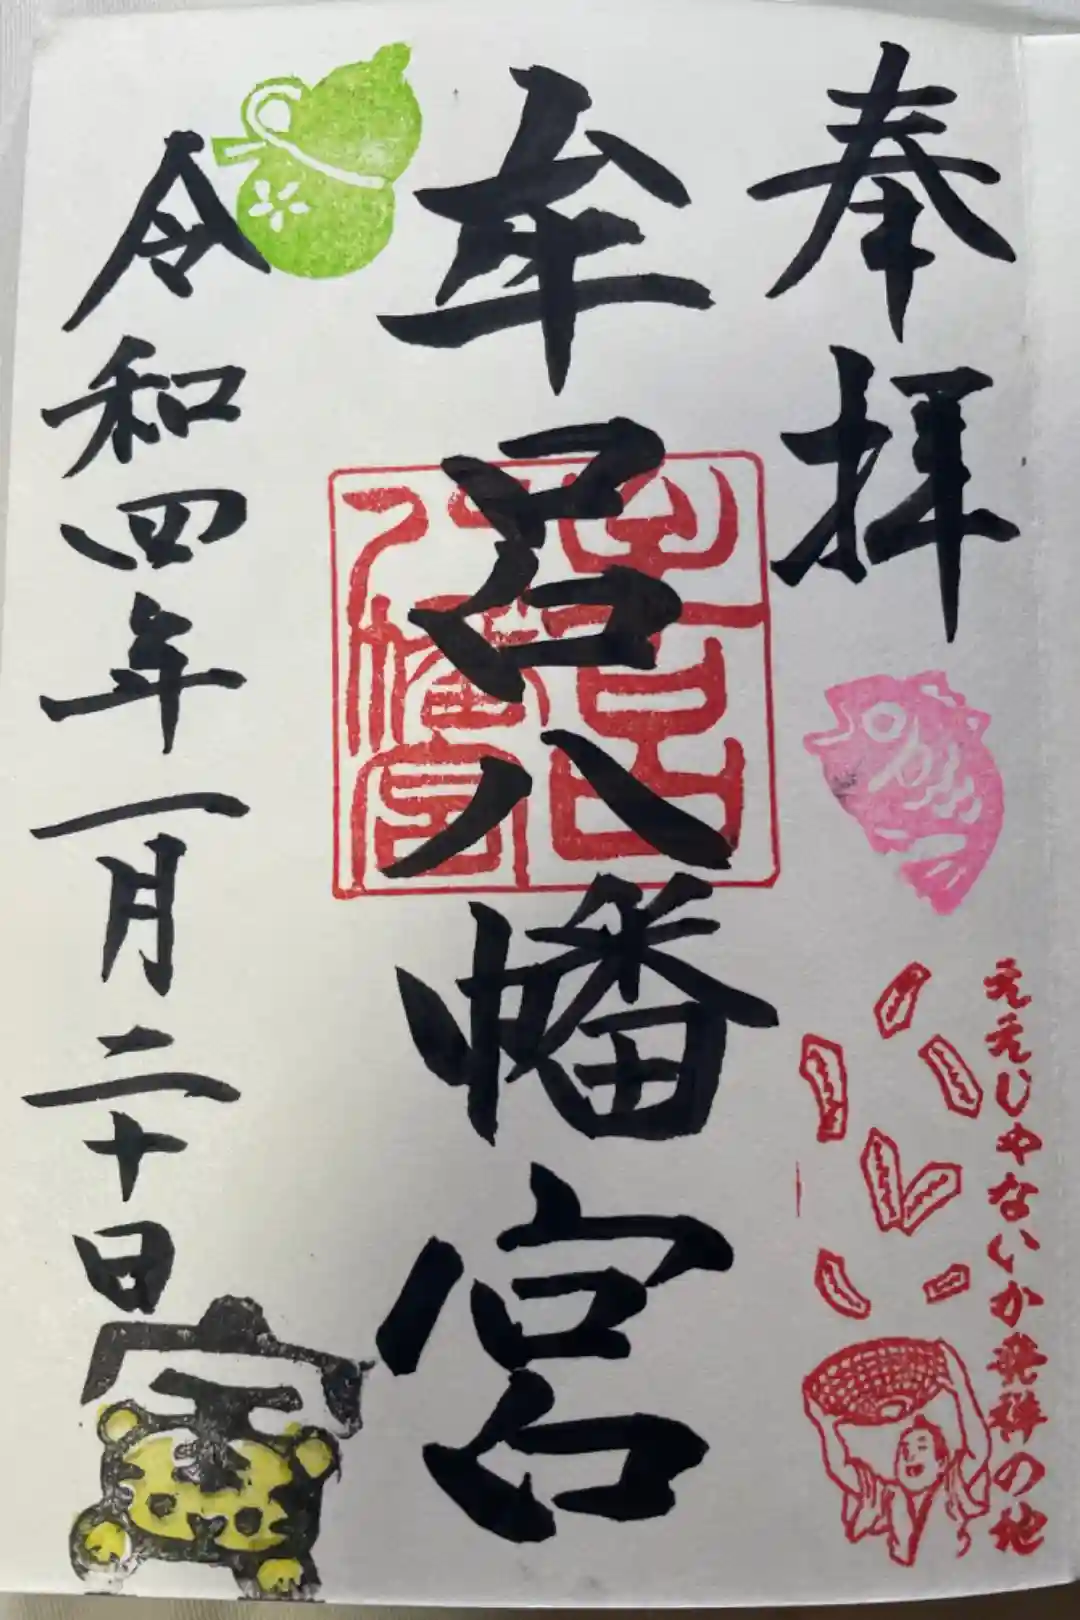 奉拝
ええじゃないか発祥の地
牟呂八幡宮
牟呂八幡宮
令和四年一月二十日